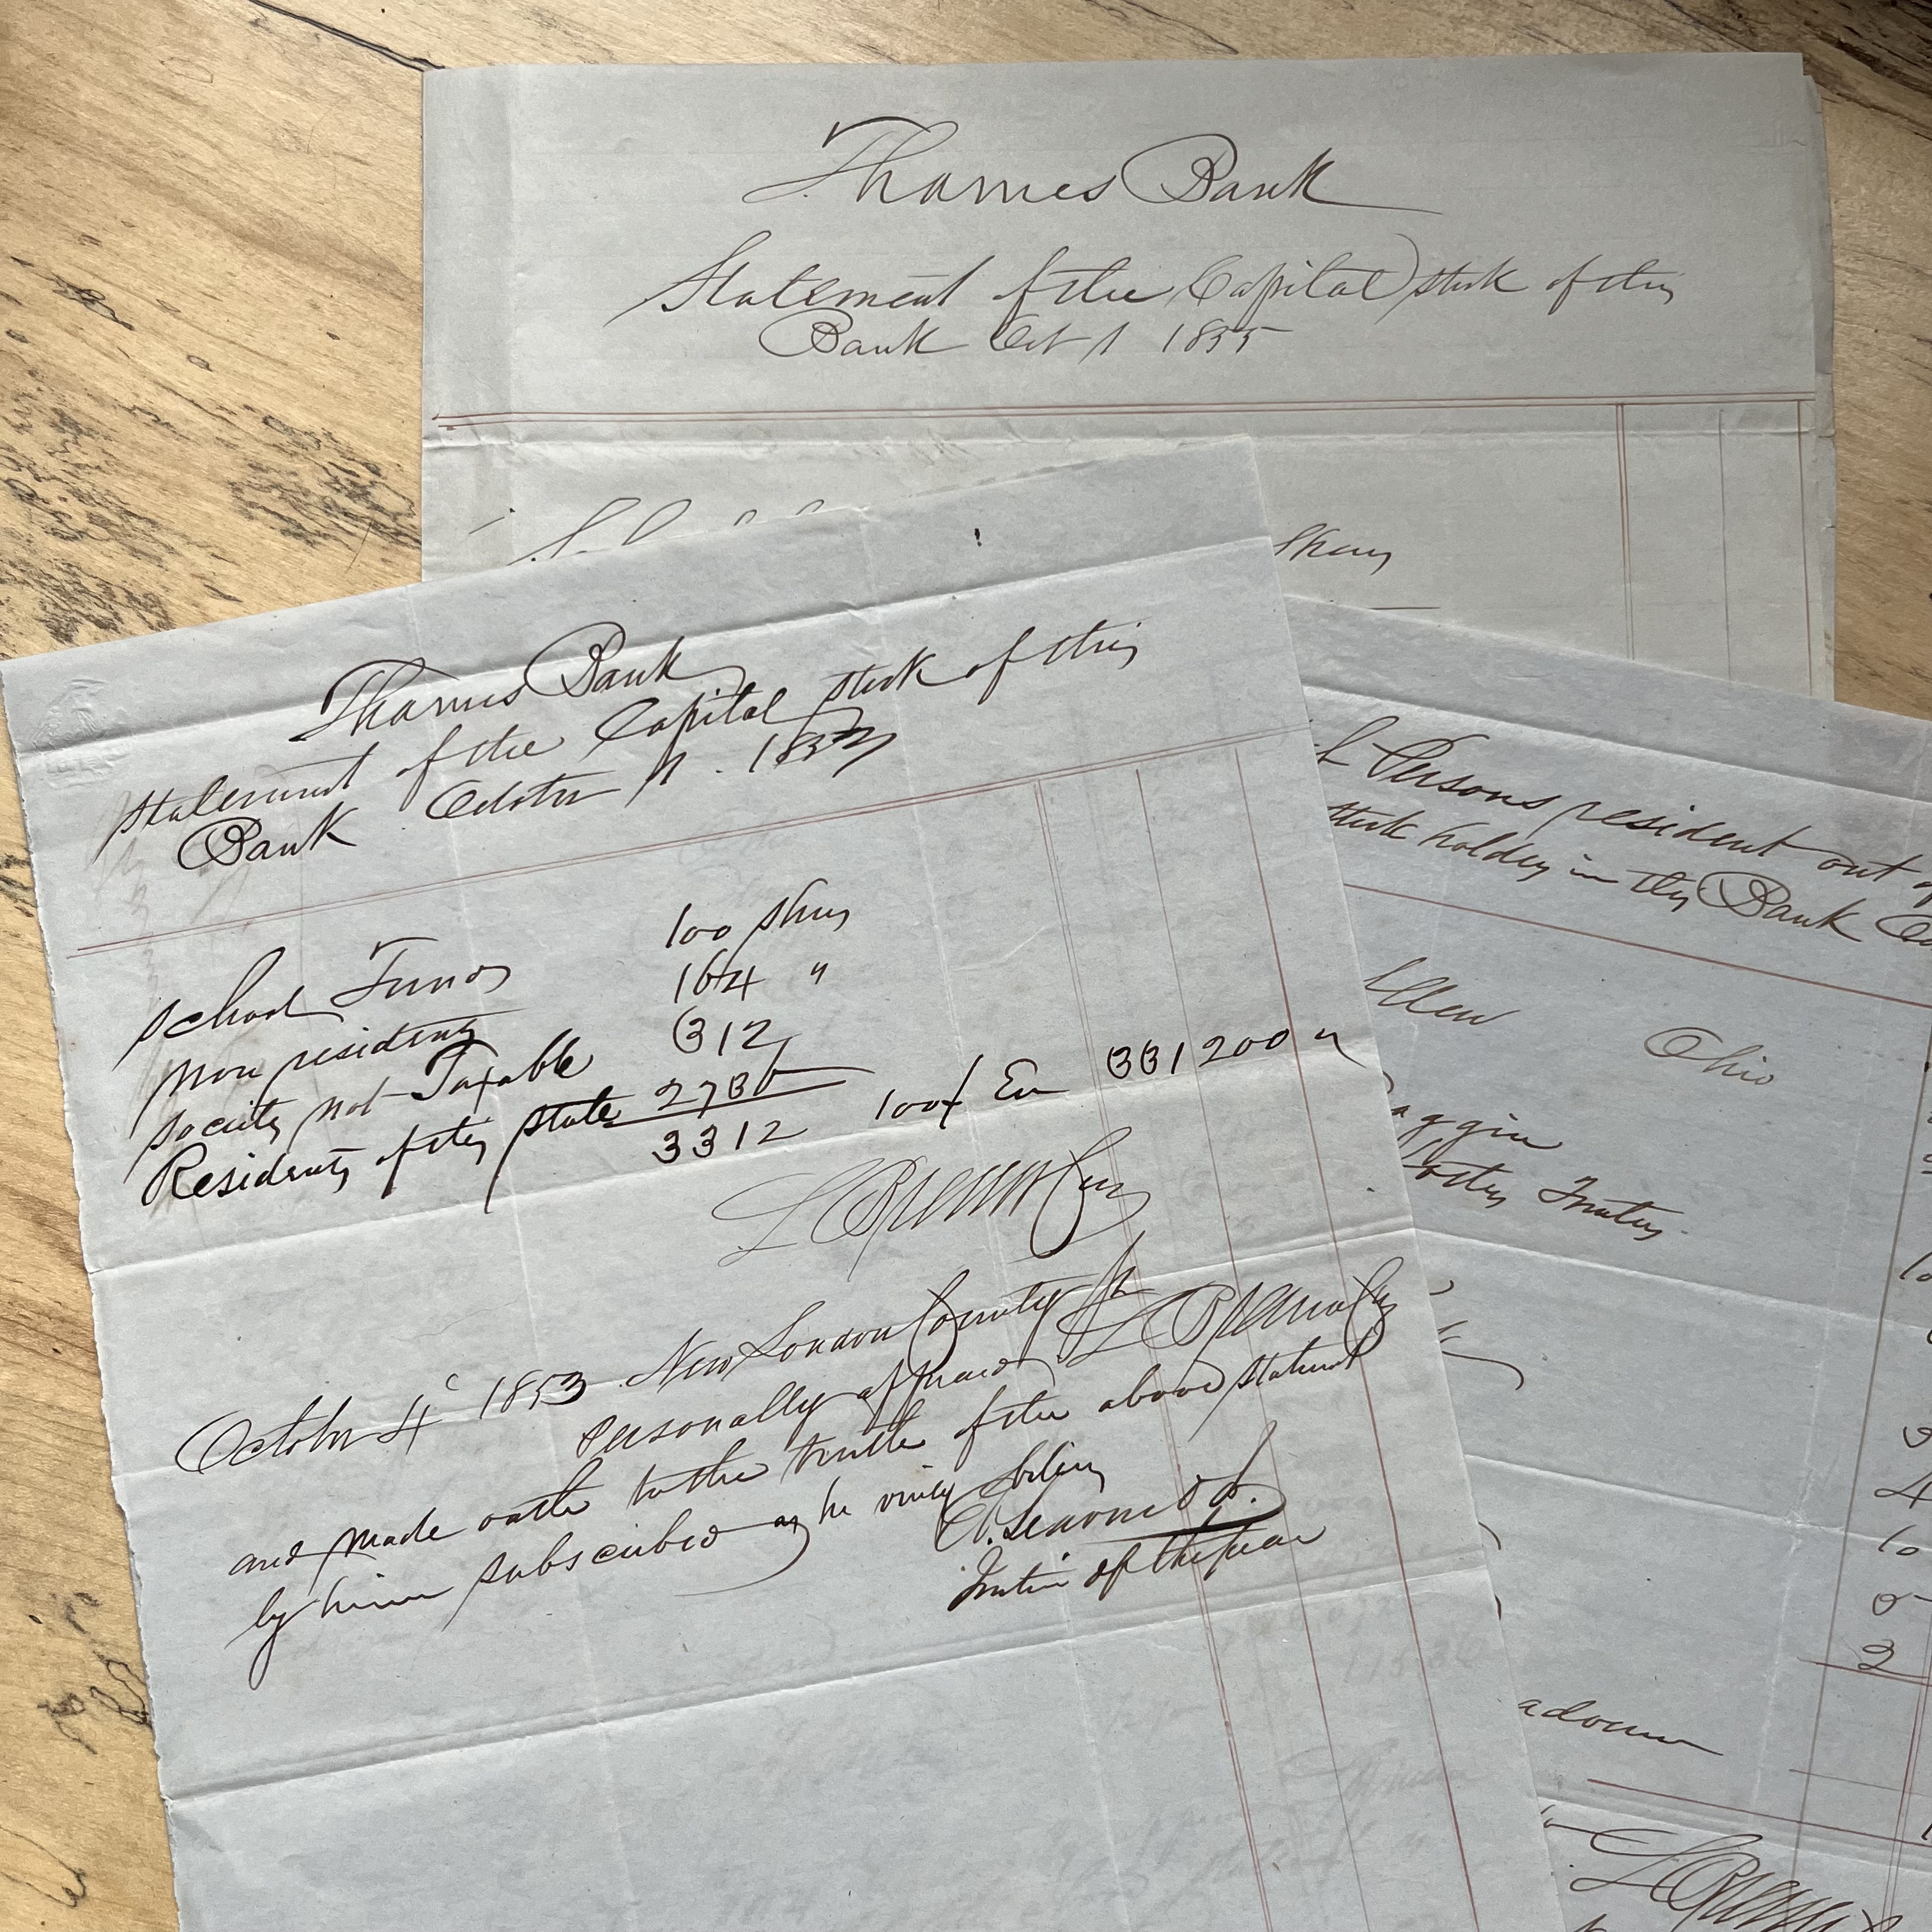 Thames Bank
Statement of the Capital stock of this
Bank Oct 1 1855
Shares
Thames Bank
Statement of the Capital stock of this
Bank October 1. 1853
School Fund 100 Shares
Non residents 164 "
Society not Taxable 312
Residents of this state 2736
3312 100$ Each 331200
L Brewer Cash
October 4 1853 New London County ss
Personally appeared L Brewer Cash
and made oath to the truth of the above statement
by him subscribed as he verily believes
Justice of the peace
Persons resident out of
stock holders in this Bank
Allen Ohio
aggin
Trustees
10
4
10
5
2
adocum
L Brewer